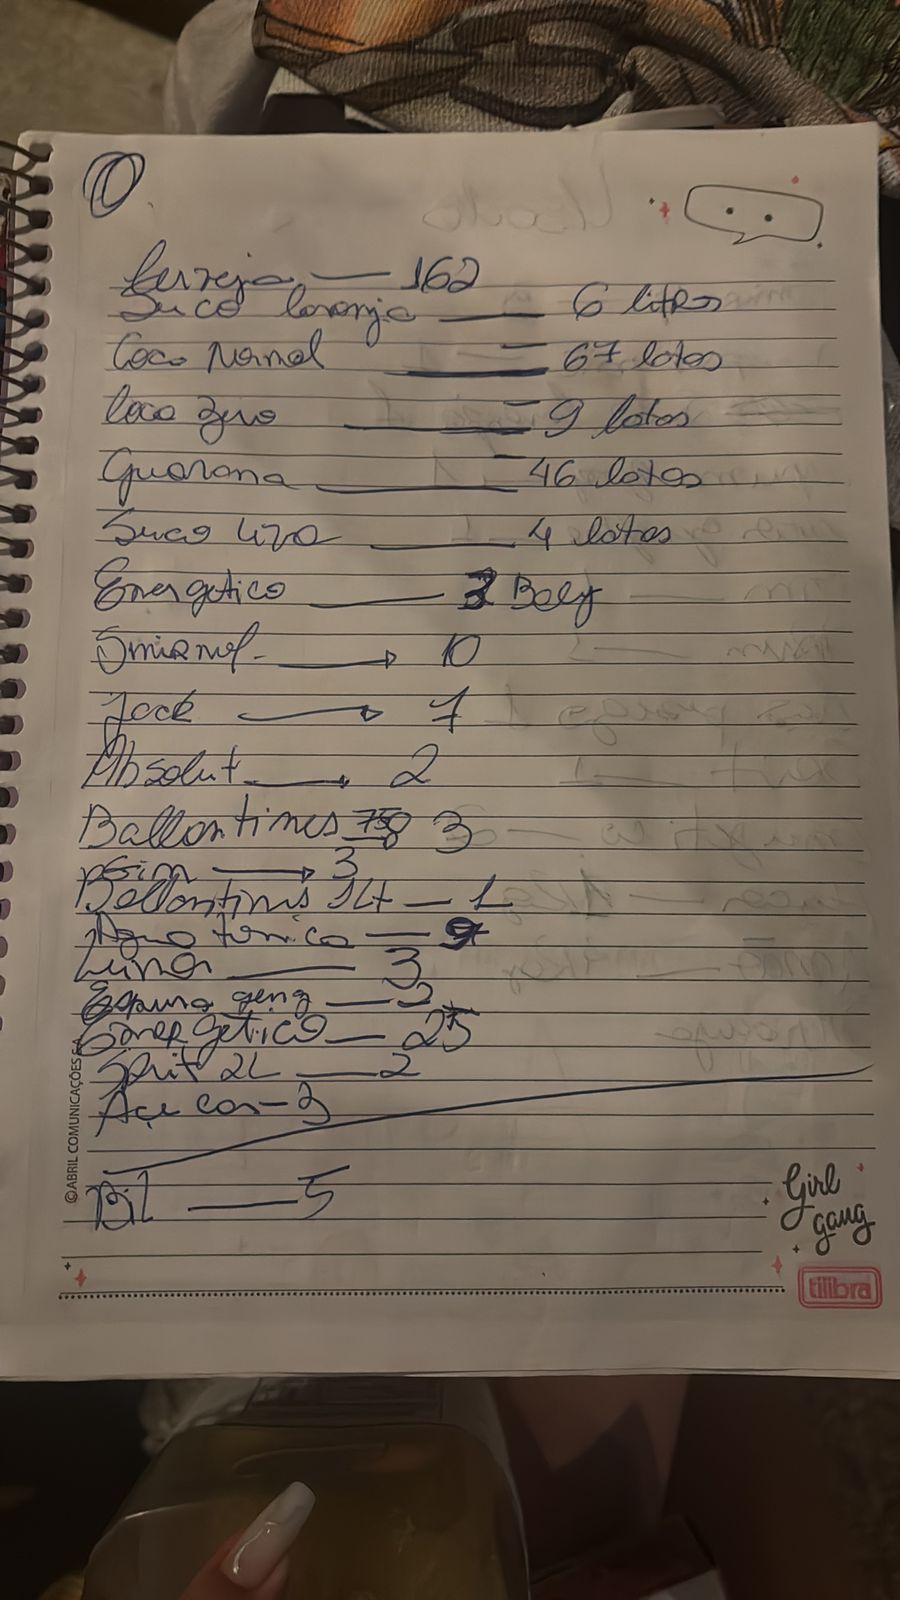 Cerveja — 162
Suco laranja — 6 litros
Coca Normal — 67 latas
Coca zero — 9 latas
Guarana — 46 latas
Suco uva — 4 latas
Energetico — Baly
Smirnof → 10
Jack → 7
Absolut → 2
Ballantines 750 3
Gim → 3
Ballantines 1Lt — 1
Agua tonica — 9
— 3
Espuma geng — 2
Energetico — 25
Sprit 2L — 2
Açucar - 3
— 5
©ABRIL COMUNICAÇÕES S.A.
Girl
gang
tilibra